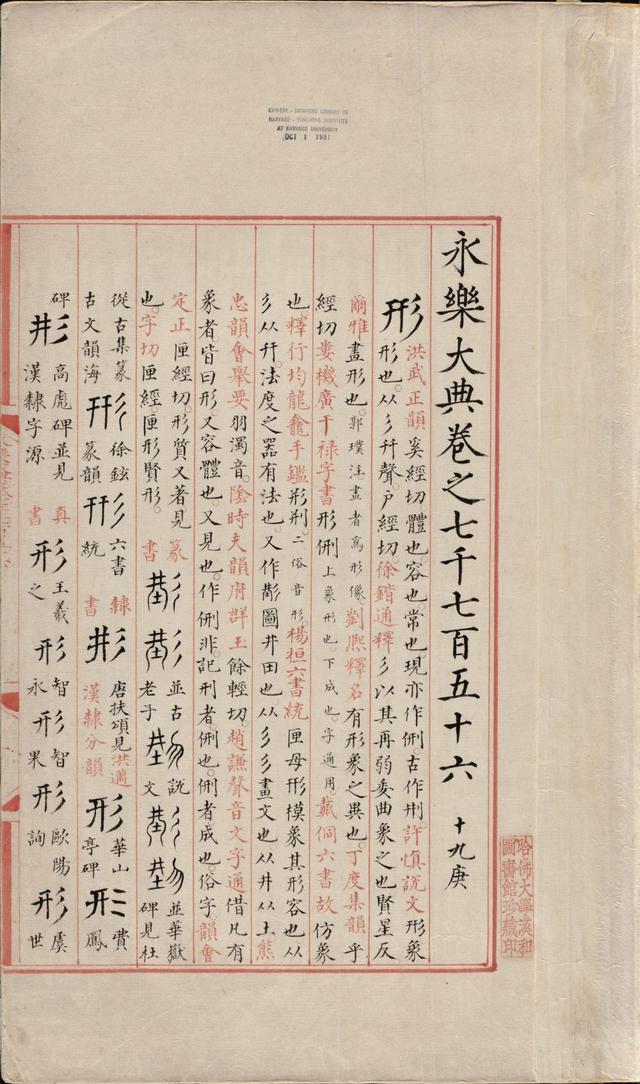 CHINESE-JAPANESE LIBRARY OF
HARVARD-YENCHING INSTITUTE
AT HARVARD UNIVERSITY
OCT 1 1931
永樂大典卷之七千七百五十六 十九庚
形
洪武正韻奚經切體也容也常也現亦作侀古作㓝許慎說文形象
形也从彡幵聲戶經切徐鍇通釋彡以其再弱委曲象之也賢星反
爾雅畫形也郭璞注畫者為形像劉熙釋名有形象之異也丁度集韻乎
經切婁機廣干禄字書形侀上象形也下成也字通用戴侗六書故仿象
也釋行均龍龕手鑑二俗音形楊桓六書統匣母形模象其形容也从
彡从幵法度之器有法也又作圖井田也从彡彡畫文也从井从土熊
忠韻會舉要羽濁音陰時夫韻府群玉餘輕切趙謙聲音文字通借凡有
象者皆曰形又容體也又見也作侀非記刑者侀也侀者成也俗字韻會
定正匣經切形質又著見
也字切匣經匣形賢形
篆書 並古老子 說文 並華嶽碑見杜
從古集篆古文韻海 形 徐鉉篆韻 形 六書統 隸書 形 唐扶頌見洪邁漢隸分韻 形 華山亭碑 形 費鳳
碑 形 高彪碑並見漢隸字源 真書 形 王羲之 形 智永 形 智果 形 歐陽詢 形 虞世
哈佛大學漢和
圖書館珍藏印